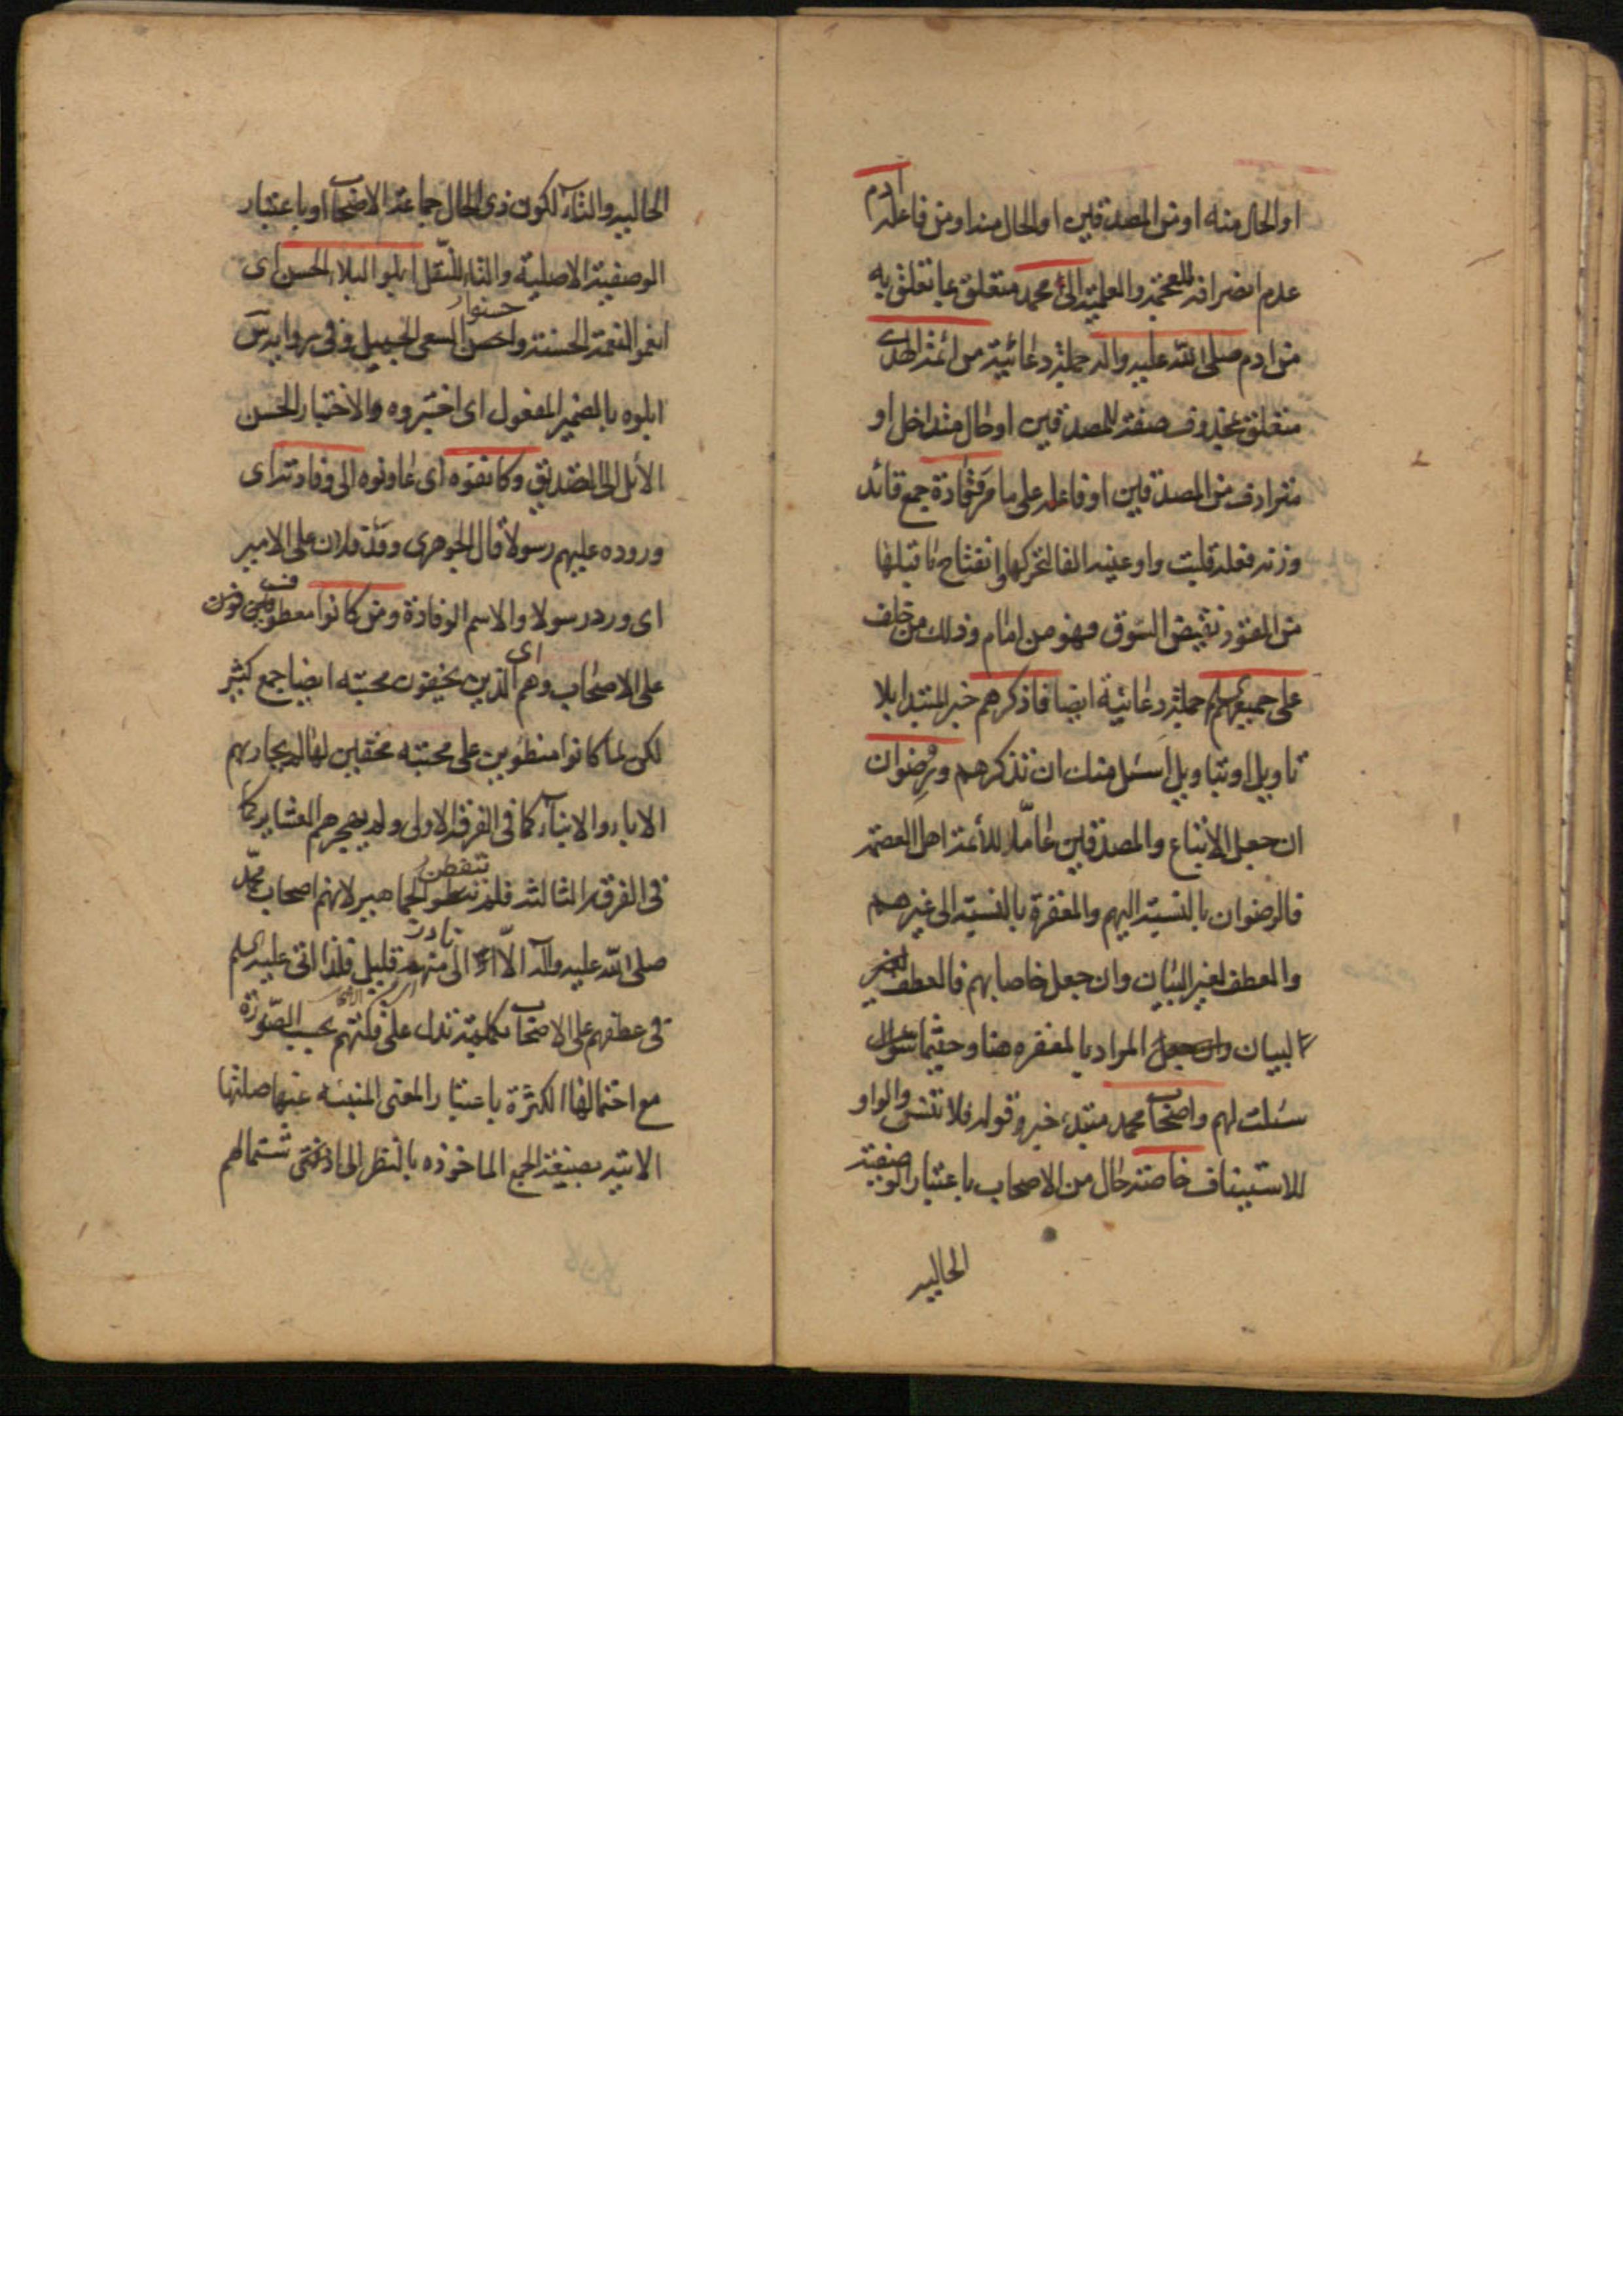 او الحال منه او من المصدقين او الحال منه او من فاعله ادم
عدم انصرافه للعجمة والعلمية الى محمد متعلق بما تعلق به
من ادم صلى الله عليه واله جملة دعائية من ائمة الهدى
متعلق بمحذوف صفة للمصدقين او حال متداخل او
مترادف من المصدقين او فاعله على ما مر قادة جمع قائد
وزنه فعلة قلبت واو عينه الفا لتحركها وانفتاح ما قبلها
من القود نقيض السوق فهو من امام وذلك من خلف
على جميعهم السلم جملة دعائية ايضا فاذكرهم خبر المبتدا بلا
تاويل او بتاويل اسئل منك ان تذكرهم ورضوان
ان جعل الاتباع والمصدقين عاما للأئمة اهل العصمة
فالرضوان بالنسبة اليهم والمغفرة بالنسبة الى غيرهم
والعطف لغير البيان وان جعل خاصا بهم فالعطف لغير
البيان وان جعل المراد بالمغفرة هنا وحيثما سؤال
سئلت لهم واصحاب محمد مبتدء خبره قوله فلا تنس والواو
للاستيناف خاصة حال من الاصحاب باعتبار الوصفية
الحالية
الحالية والتاء لكون ذي الحال جماعة الاصحاب او باعتبار
الوصفية الاصلية والتاء للنقل ابلوا البلاء الحسن اى
انعموا النعمة الحسنة واحسنوا السعى الجميل وفى رواية س
ابلوه بالضمير المفعول اى اختبروه والاختبار الحسن
الأئل الى التصديق وكانفوه اى عاونوه الى وفادته اى
وروده عليهم رسولا قال الجوهرى وفد فلان على الامير
اى ورد رسولا والاسم الوفادة ومن كانوا معطوف
على الاصحاب وهم اى الذين يخيفون محبته ايضا جمع كثير
لكن لما كانوا منطوين على محبته مخفين لها لم يحاربهم
الاباء والابناء كما فى الفرقة الاولى ولم يهجرهم العشاير كما
فى الفرقة الثالثة فلم تتفطن الجماهير لانهم اصحاب محمد
صلى الله عليه واله الا نادرا قليل فلذا اتى عليه السلم
فى عطفهم على الاصحاب بكلمة تدل على قلتهم بحسب الصورة
مع احتمالها الكثرة باعتبار المعنى المنبئه عنها صلتها
الاتية بصيغة الجمع الماخوذه بالنظر الى